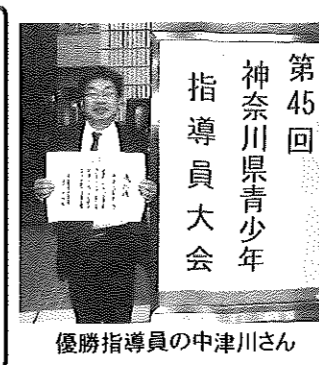 第45回
神奈川県青少年
指導員大会
優勝指導員の中津川さん